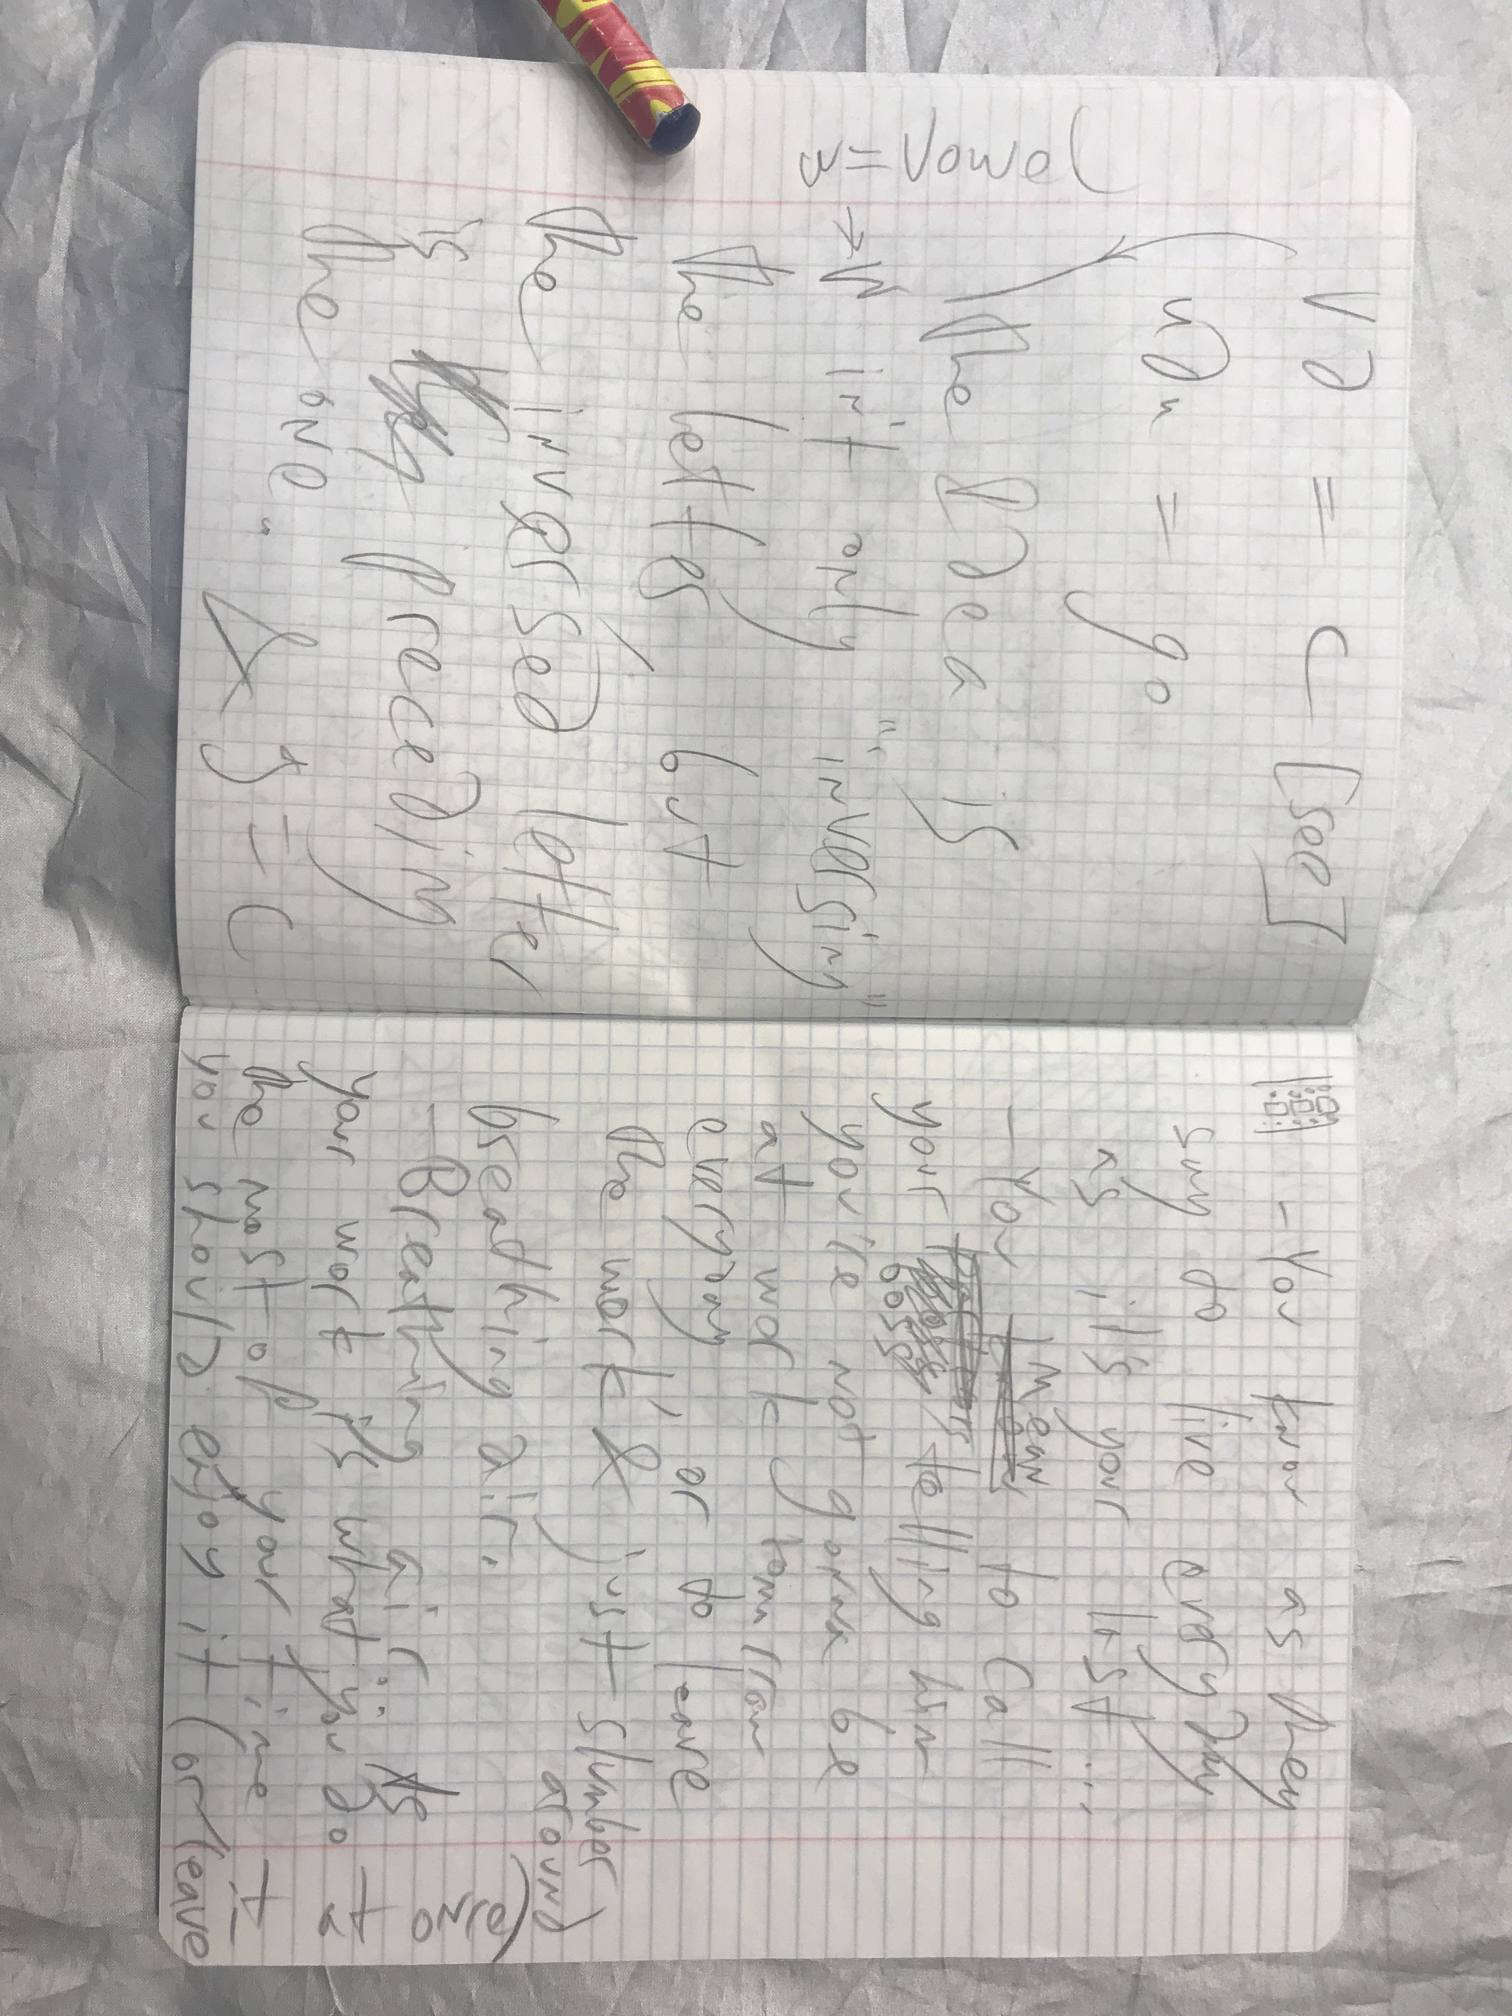 V∂ = C [sec]
u∂u = go
the idea is
→ W init only "inversing"
w = Vowel
the letters, but
the inversed letter
is preceding
the one"
& J = C
- You know as they
say do live every day
as it's your last ...
- You mean to call
your boss telling him
you're not gonna be
at work tomorrow
everyday, or to leave
the work & just slumber
around
breathing air.
- Breathing air... As
your work is what you do
the most of your time
you should enjoy it (or leave